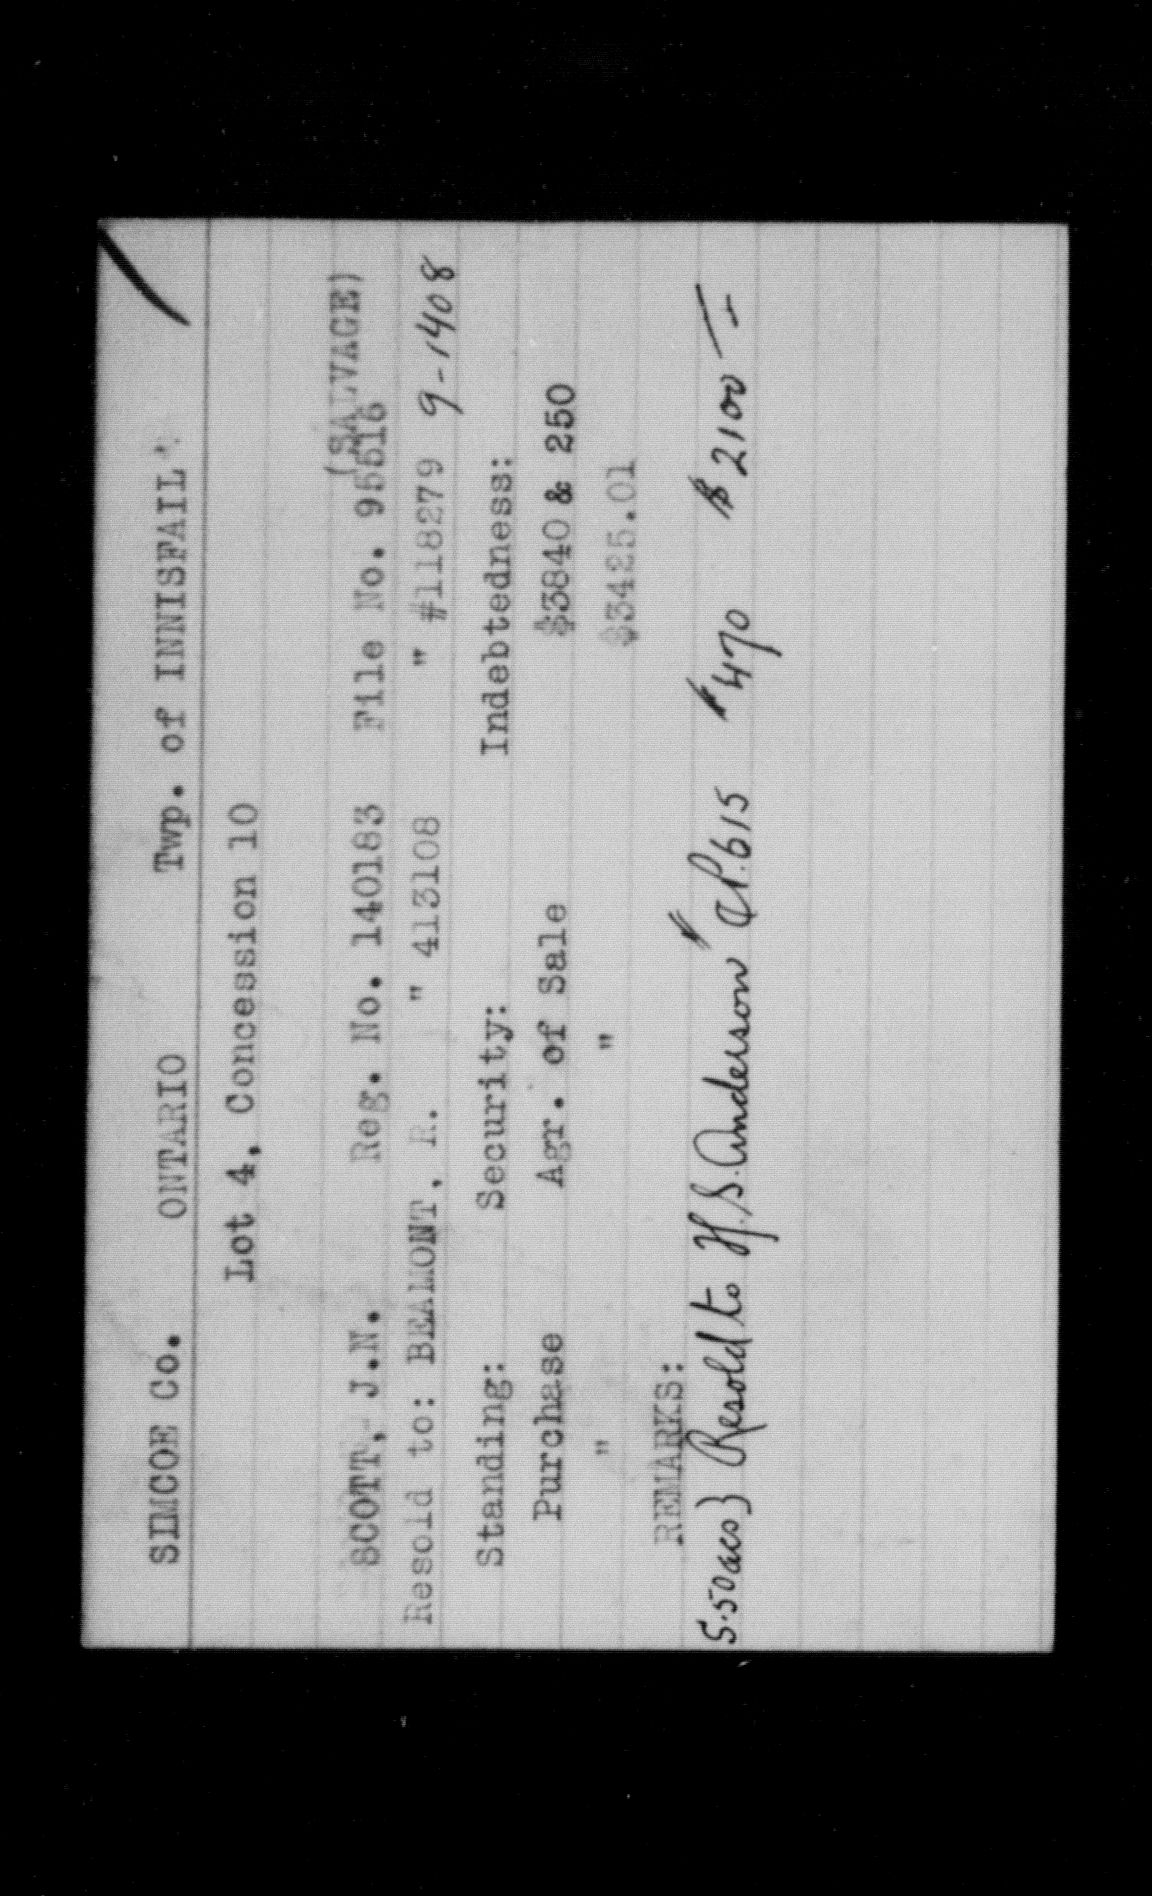 SIMCOE Co. ONTARIO Twp. of INNISFAIL
Lot 4, Concession 10
(SALVAGE)
SCOTT, J.N. Reg. No. 140183 File No. 95516
Resold to: BEAMONT, R. " 413108 " #118279 9-1408
Standing: Security: Indebtedness:
Purchase Agr. of Sale $3840 & 250
" " $3425.01
REMARKS:
S.50acs} Resold to H.S. Anderson C.P. 615 $470 $2100